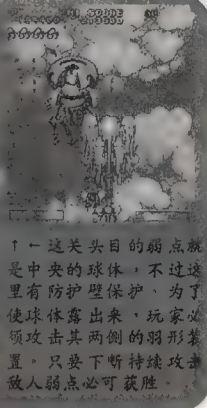 HI SCORE
↑←这关头目的弱点就
是中央的球体，不过这
里有防护壁保护、为了
使球体露出来，玩家必
须攻击其两侧的羽形装
置。只要不断持续攻击
敌人弱点必可获胜。